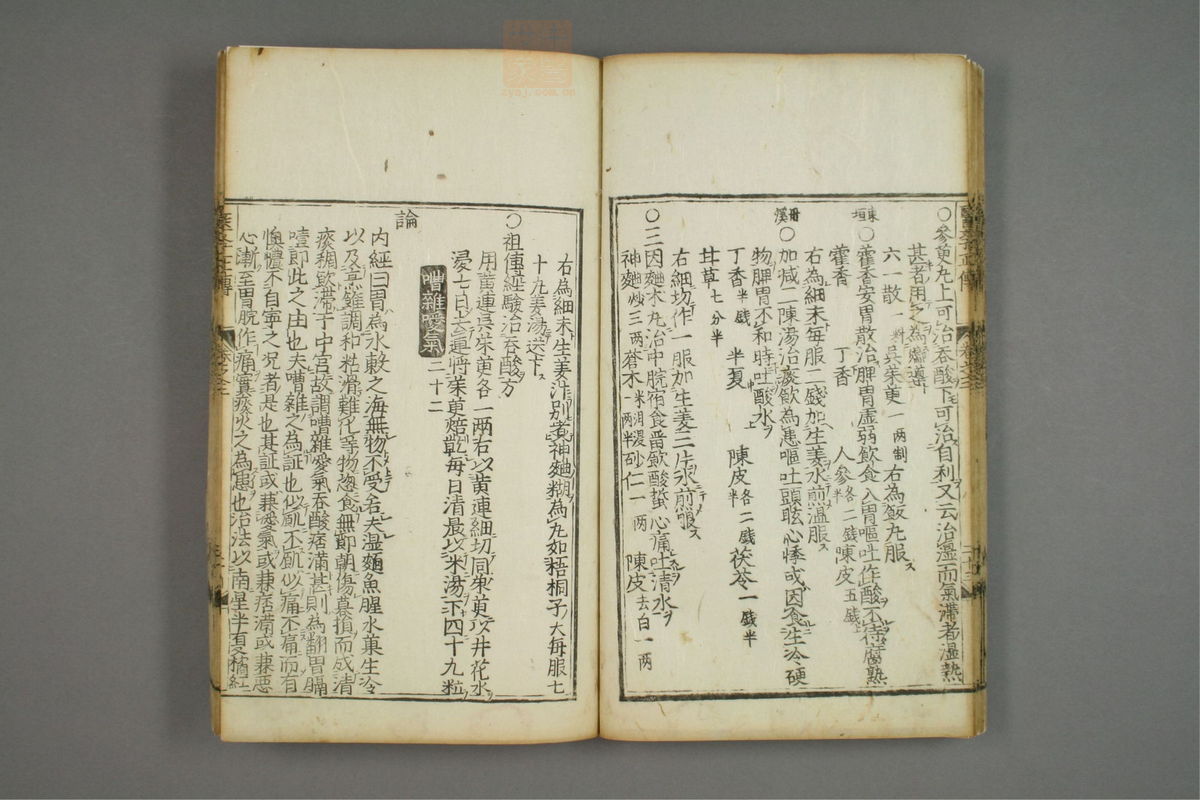 ○參黄丸上可治吞酸下可治自利又云治濕而氣滯者濕熱
甚者用之為嚮導
六一散一料吳茱萸一兩制右為飯丸服
東垣○藿香安胃散治脾胃虛弱飲食入胃嘔吐作酸不待腐熟
藿香 丁香 人參各二錢半陳皮五錢
右為細末每服二錢加生姜水煎溫服
丹溪○加减二陳湯治痰飲為患嘔吐頭眩心悸或因食生冷硬
物脾胃不和時吐酸水
丁香半錢 半夏 陳皮各二錢半茯苓一錢半
甘草七分半
右細切作一服加生姜三片水煎服
○三因麯朮丸治中脘宿食畱飲酸蜇心痛吐清水
神麯炒三兩蒼朮米泔浸一兩半砂仁一兩 陳皮去白一兩
右為細末生姜汁別煮神麯糊為丸如梧桐子大每服七
十丸姜湯送下
○祖傳經驗治吞酸方
用黄連吳茱萸各一兩右以黄連細切同茱萸以井花水
浸七日去連將茱萸焙乾每日清晨以米湯下四十九粒
嘈雜噯氣二十二
論
内經曰胃為水穀之海無物不受若夫濕麵魚腥水菓生冷
以及烹飪調和粘滑難化等物恣食無節朝傷暮損而成清
痰稠飲滯于中宮故謂嘈雜噯氣吞酸痞滿甚則為翻胃膈
噎即此之由也夫嘈雜之為証也似飢不飢似痛不痛而有
懊憹不自寧之况者是也其証或兼噯氣或兼痞滿或兼惡
心漸至胃脘作痛實痰火之為患也治法以南星半夏橘紅